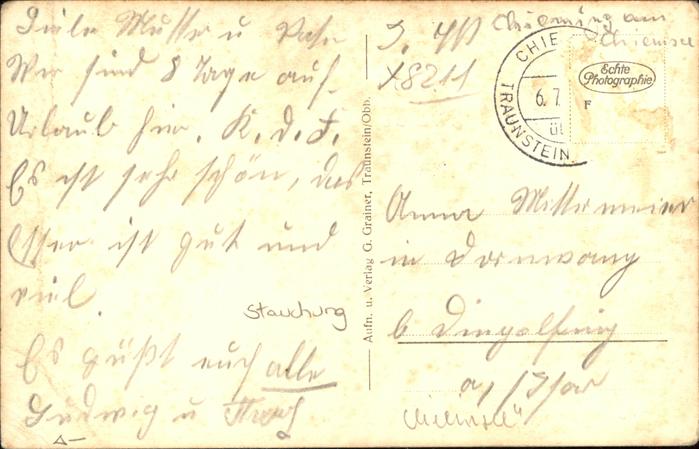 Liebe Mutter u Vater
Wir sind 8 Tage auf
Urlaub hier. K. d. F.
Es ist sehr schön, das
Essen ist gut und
viel.
Stauchung
Es grüßt euch alle
Ludwig u
Aufn. u. Verlag G. Grainer, Traunstein/Obb.
x8211
Chieming am
Chiemsee
CHIE
6. 7.
üb
TRAUNSTEIN
Echte
Photographie
F
Anna Mittermeier
in Dornwang
b Dingolfing
a/Isar
Chiemsee